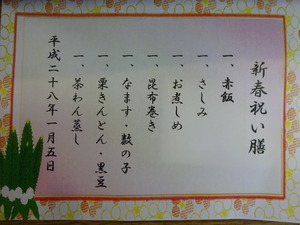 新春祝い膳
一、赤飯
一、さしみ
一、お煮しめ
一、昆布巻き
一、なます・数の子
一、栗きんとん・黒豆
一、茶わん蒸し
平成二十八年一月五日